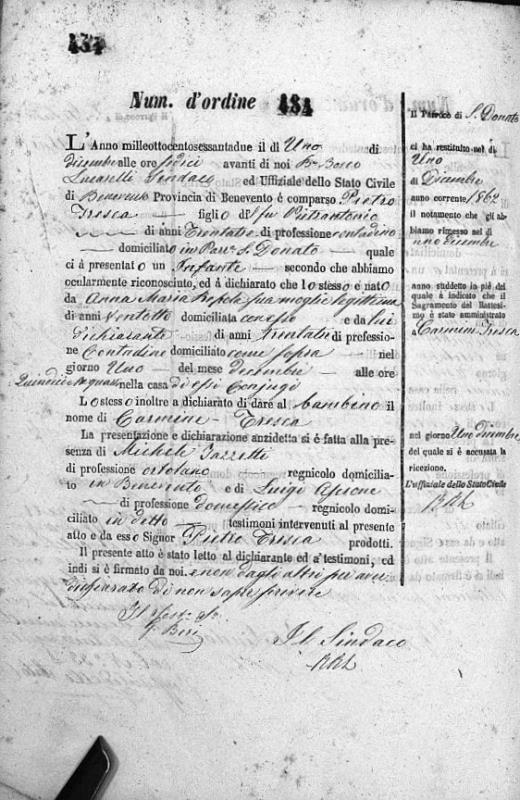 434
Num. d'ordine 434
L'Anno milleottocentosessantadue il dì Uno di
dicembre alle ore sedici avanti di noi Bne Bosco
Lucarelli Sindaco ed Uffiziale dello Stato Civile
di Benevento Provincia di Benevento è comparso Pietro
Tresca figlio di fu Pietrantonio
di anni Trentatre di professione contadino
domiciliato in Parr. S. Donato quale
ci à presentato un Infante secondo che abbiamo
ocularmente riconosciuto, ed à dichiarato che lo stesso è nato
da Anna Maria sua moglie legittima
di anni Ventotto domiciliata con esso e da lui
dichiarante di anni trentatre di professio-
ne Contadino domiciliato come sopra nel
giorno Uno del mese dicembre alle ore
Quindici di nella casa di essi Conjugi
Lo stesso inoltre à dichiarato di dare al bambino il
nome di Carmine Tresca
La presentazione e dichiarazione anzidetta si è fatta alla pre-
senza di Michele
di professione ortolano regnicolo domicilia-
to in Benevento e di Luigi
di professione Domestico regnicolo domi-
ciliato in detto testimoni intervenuti al presente
atto e da esso Signor Pietro Tresca prodotti.
Il presente atto è stato letto al dichiarante ed a' testimoni, ed
indi si è firmato da noi e non dagli altri per aver
dichiarato di non sapere scrivere
Il Sindaco
Il Parroco di S. Donato
ci ha restituito nel dì
Uno
di Dicembre
anno corrente 1862
il notamento che gli ab-
biamo rimesso nel dì
uno dicembre
anno suddetto in piè del
quale à indicato che il
Sagramento del Battesi-
mo è stato amministrato
a Carmine Tresca
nel giorno Uno Dicembre
del quale si è accusata la
ricezione.
L'uffiziale dello Stato Civile